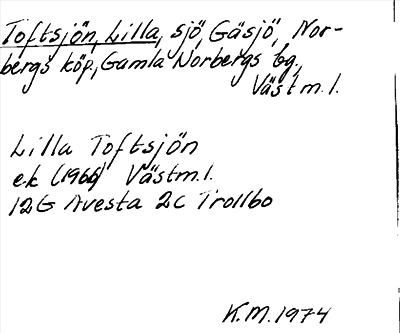 Toftsjön, Lilla, sjö, Gäsjö, Nor-
bergs köp., Gamla Norbergs bg.,
Västm. l.
Lilla Toftsjön
ek (1966) Västm. l.
12G Avesta 2c Trollbo
K.M. 1974